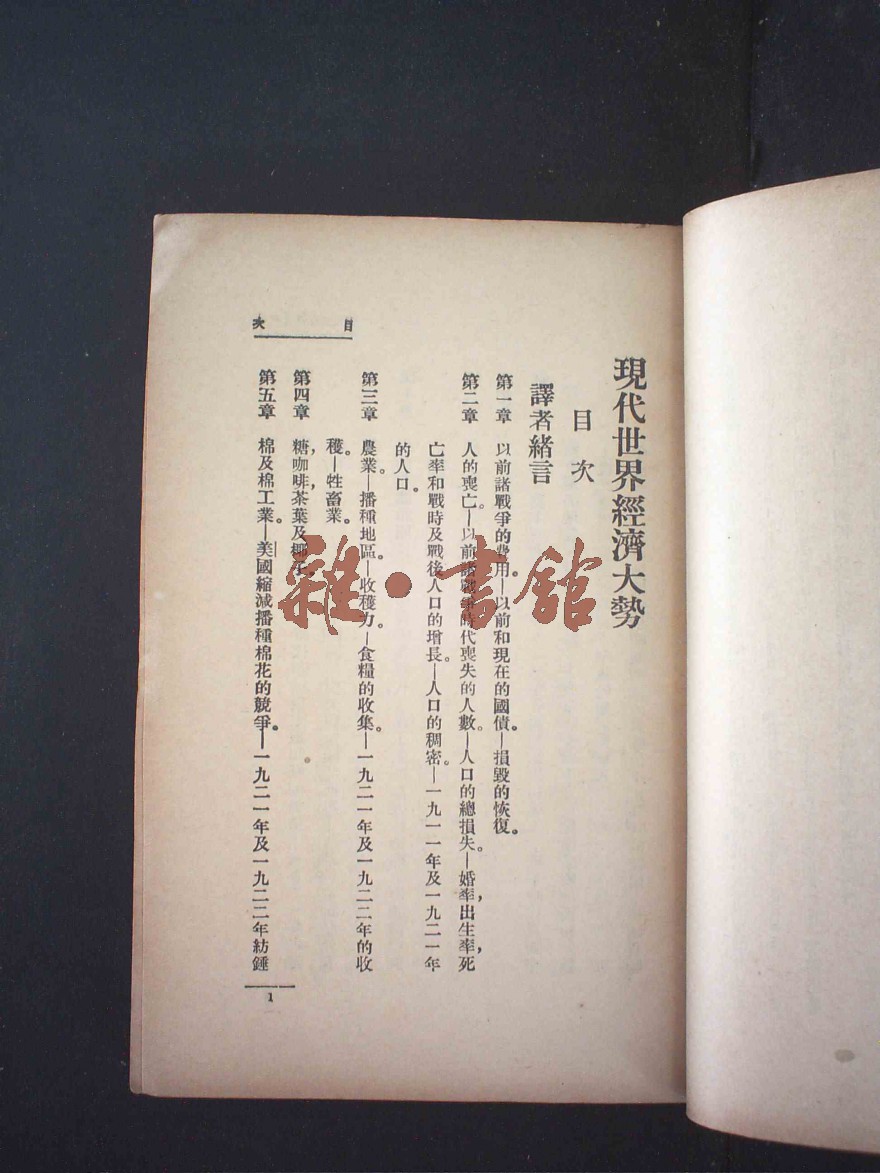 現代世界經濟大勢
目次
譯者緒言
第一章 以前諸戰爭的費用。—以前和現在的國債。—損毀的恢復。
第二章 人的喪亡。—以前諸戰爭時代喪失的人數。—人口的總損失。—婚率,出生率,死
亡率和戰時及戰後人口的增長。—人口的稠密。—一九一一年及一九二一年
的人口。
第三章 農業。—播種地區。—收穫力。—食糧的收集。—一九二一年及一九二二年的收
穫。—牲畜業。
第四章 糖,咖啡,茶葉及椰子。
第五章 棉及棉工業。—美國縮減播種棉花的競爭。—一九二一年及一九二二年紡錘
目次
1
雜·書館